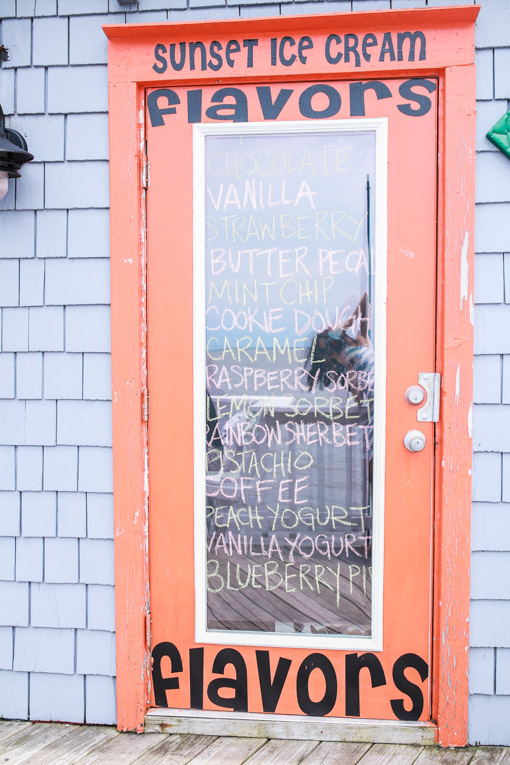 SUNSET ICE CREAM
flavors
CHOCOLATE
VANILLA
STRAWBERRY
BUTTER PECA
MINT CHIP
COOKIE DOUGH
CARAMEL
RASPBERRY SORBE
LEMON SORBET
RAINBOW SHERBET
PISTACHIO
COFFEE
PEACH YOGURT
VANILLA YOGURT
BLUEBERRY PI
flavors